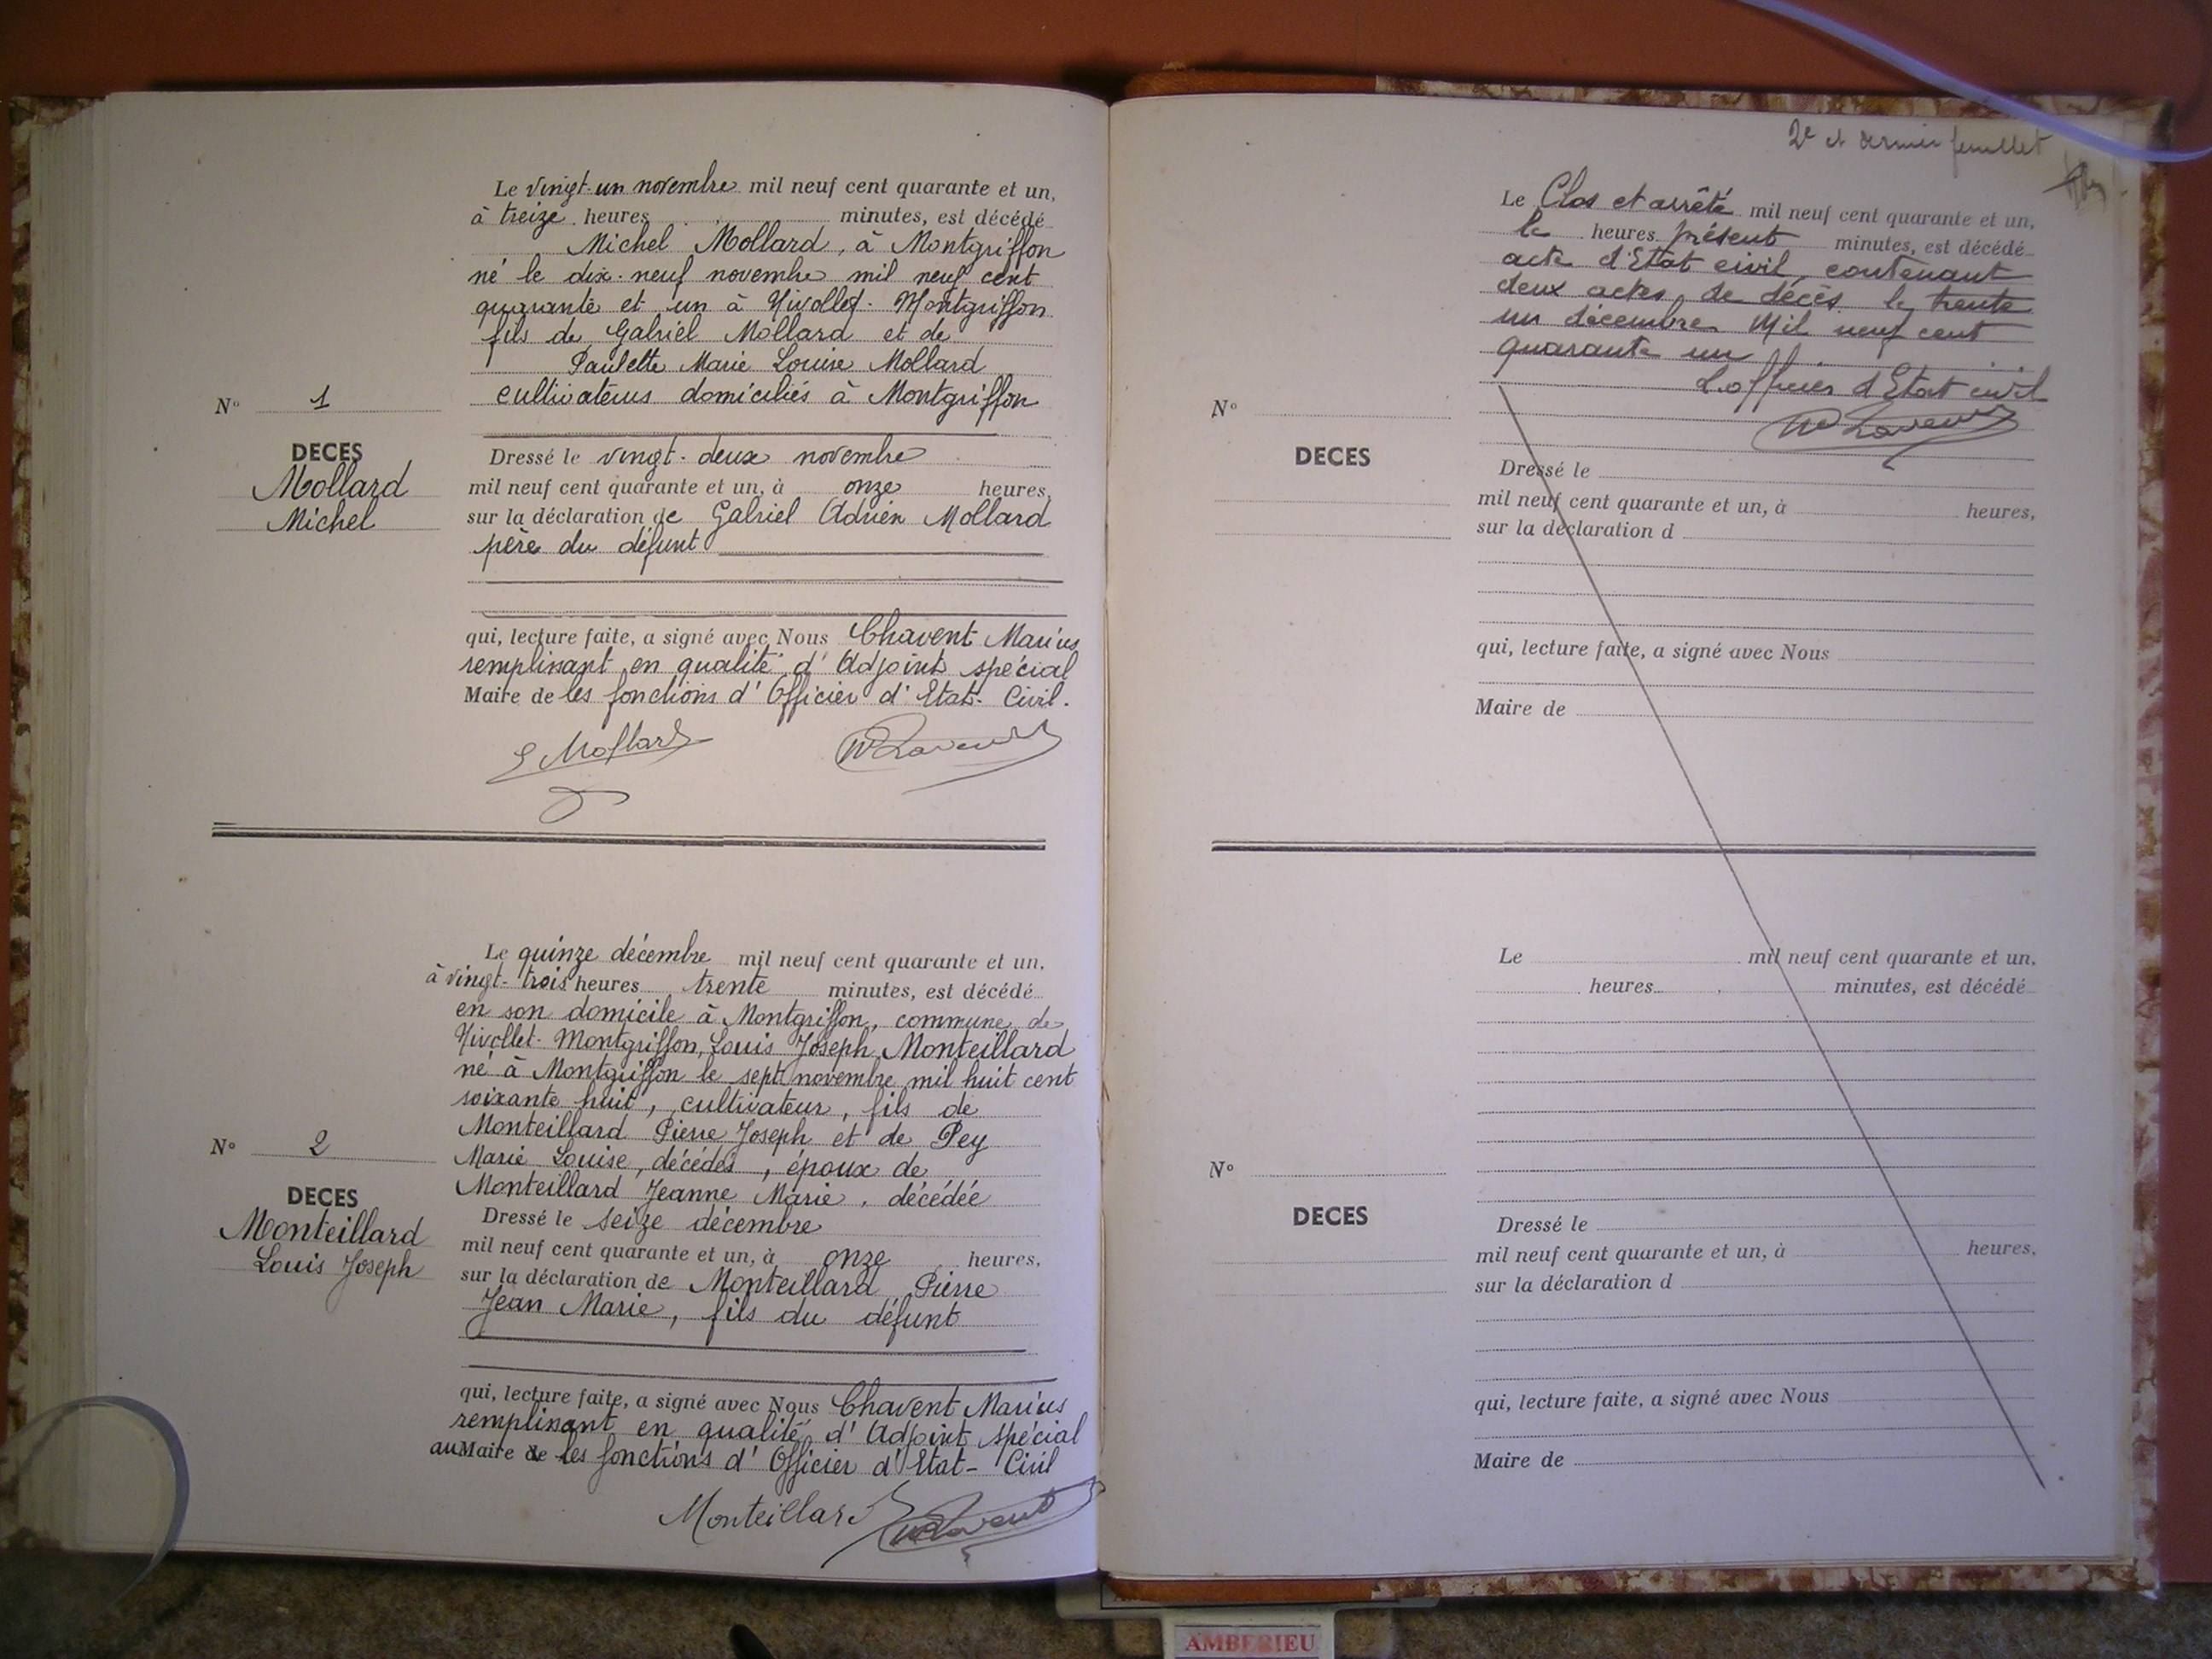 Le vingt-un novembre mil neuf cent quarante et un,
à treize heures minutes, est décédé
Michel Mollard, à Montgriffon
né le dix-neuf novembre mil neuf cent
quarante et un à Nivollet-Montgriffon
fils de Gabriel Mollard et de
Paulette Marie Louise Mollard
cultivateurs domiciliés à Montgriffon
N° 1
DECES
Mollard
Michel
Dressé le vingt-deux novembre
mil neuf cent quarante et un, à onze heures,
sur la déclaration de Gabriel Adrien Mollard
père du défunt
qui, lecture faite, a signé avec Nous Chavent Marius
remplissant en qualité d'Adjoint spécial
Maire de les fonctions d'Officier d'Etat-Civil.
G Mollard
Le quinze décembre mil neuf cent quarante et un.
à vingt-trois heures trente minutes, est décédé
en son domicile à Montgriffon, commune de
Nivollet-Montgriffon, Louis Joseph Monteillard
né à Montgriffon le sept novembre mil huit cent
soixante huit, cultivateur, fils de
Monteillard Pierre Joseph et de Pey
Marie Louise, décédés, époux de
Monteillard Jeanne Marie, décédée
N° 2
DECES
Monteillard
Louis Joseph
Dressé le seize décembre
mil neuf cent quarante et un, à onze heures,
sur la déclaration de Monteillard Pierre
Jean Marie, fils du défunt
qui, lecture faite, a signé avec Nous Chavent Marius
remplissant en qualité d'Adjoint spécial
au Maire de les fonctions d'Officier d'Etat-Civil
Monteillard
2e et dernier feuillet
Le Clos et arrêté mil neuf cent quarante et un,
le heures présent minutes, est décédé
acte d'Etat civil, contenant
deux actes de décès le trente
un décembre Mil neuf cent
quarante un
L'officier d'Etat civil
N°
DECES
Dressé le
mil neuf cent quarante et un, à heures,
sur la déclaration d
qui, lecture faite, a signé avec Nous
Maire de
Le mil neuf cent quarante et un,
heures minutes, est décédé
N°
DECES
Dressé le
mil neuf cent quarante et un, à heures,
sur la déclaration d
qui, lecture faite, a signé avec Nous
Maire de
AMBERIEU